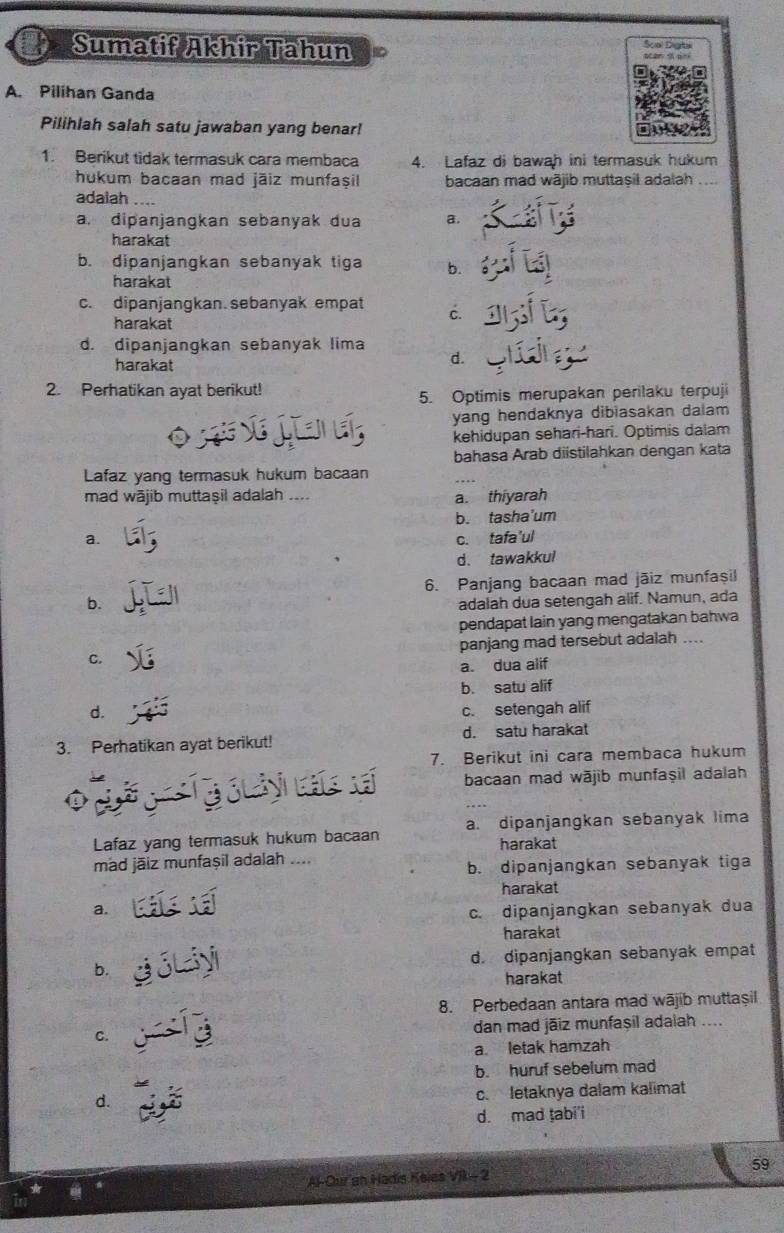 Sumatif Akhir Tahun
A. Pilihan Ganda
Pilihlah salah satu jawaban yang benar!
1. Berikut tidak termasuk cara membaca
hukum bacaan mad jāiz munfaṣil
adalah ....
a. dipanjangkan sebanyak dua
harakat
b. dipanjangkan sebanyak tiga
harakat
c. dipanjangkan sebanyak empat
harakat
d. dipanjangkan sebanyak lima
harakat
2. Perhatikan ayat berikut!
وَاَمَّا السَّاۤىِٕلَ فَلَا تَنْهَرْ
Lafaz yang termasuk hukum bacaan
mad wājib muttaṣil adalah ....
a. وَاَمَّا
b. السَّاۤىِٕلَ
c. فَلَا
d. تَنْهَرْ
3. Perhatikan ayat berikut!
لَقَدْ خَلَقْنَا الْاِنْسَانَ فِيْٓ اَحْسَنِ تَقْوِيْمٍ
Lafaz yang termasuk hukum bacaan
mad jāiz munfaṣil adalah ....
a. لَقَدْ خَلَقْنَا
b. الْاِنْسَانَ فِيْ
c. فِيْٓ اَحْسَنِ
d. تَقْوِيْمٍ
4. Lafaz di bawah ini termasuk hukum
bacaan mad wājib muttaṣil adalah ....
a. قُوْٓا اَنْفُسَكُمْ
b. اِنَّمَآ اَمْرُهٗ
c. وَمَآ اَدْرٰىكَ
d. سُوْۤءَ الْعَذَابِ
5. Optimis merupakan perilaku terpuji
yang hendaknya dibiasakan dalam
kehidupan sehari-hari. Optimis dalam
bahasa Arab diistilahkan dengan kata
....
a. thiyarah
b. tasha'um
c. tafa'ul
d. tawakkul
6. Panjang bacaan mad jāiz munfaṣil
adalah dua setengah alif. Namun, ada
pendapat lain yang mengatakan bahwa
panjang mad tersebut adalah ....
a. dua alif
b. satu alif
c. setengah alif
d. satu harakat
7. Berikut ini cara membaca hukum
bacaan mad wājib munfaṣil adalah
....
a. dipanjangkan sebanyak lima
harakat
b. dipanjangkan sebanyak tiga
harakat
c. dipanjangkan sebanyak dua
harakat
d. dipanjangkan sebanyak empat
harakat
8. Perbedaan antara mad wājib muttaṣil
dan mad jāiz munfaṣil adalah ....
a. letak hamzah
b. huruf sebelum mad
c. letaknya dalam kalimat
d. mad ṭabi'i
Al-Qur'an Hadis Kelas VII – 2
59